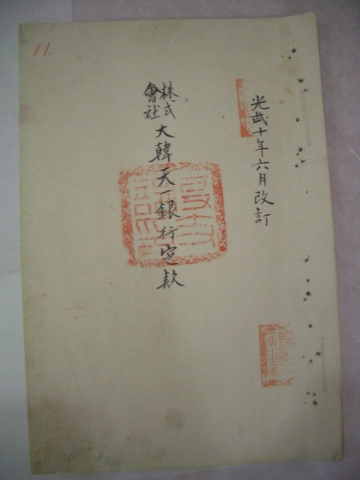 光武十年六月改訂
株式會社 大韓天一銀行定款
11.